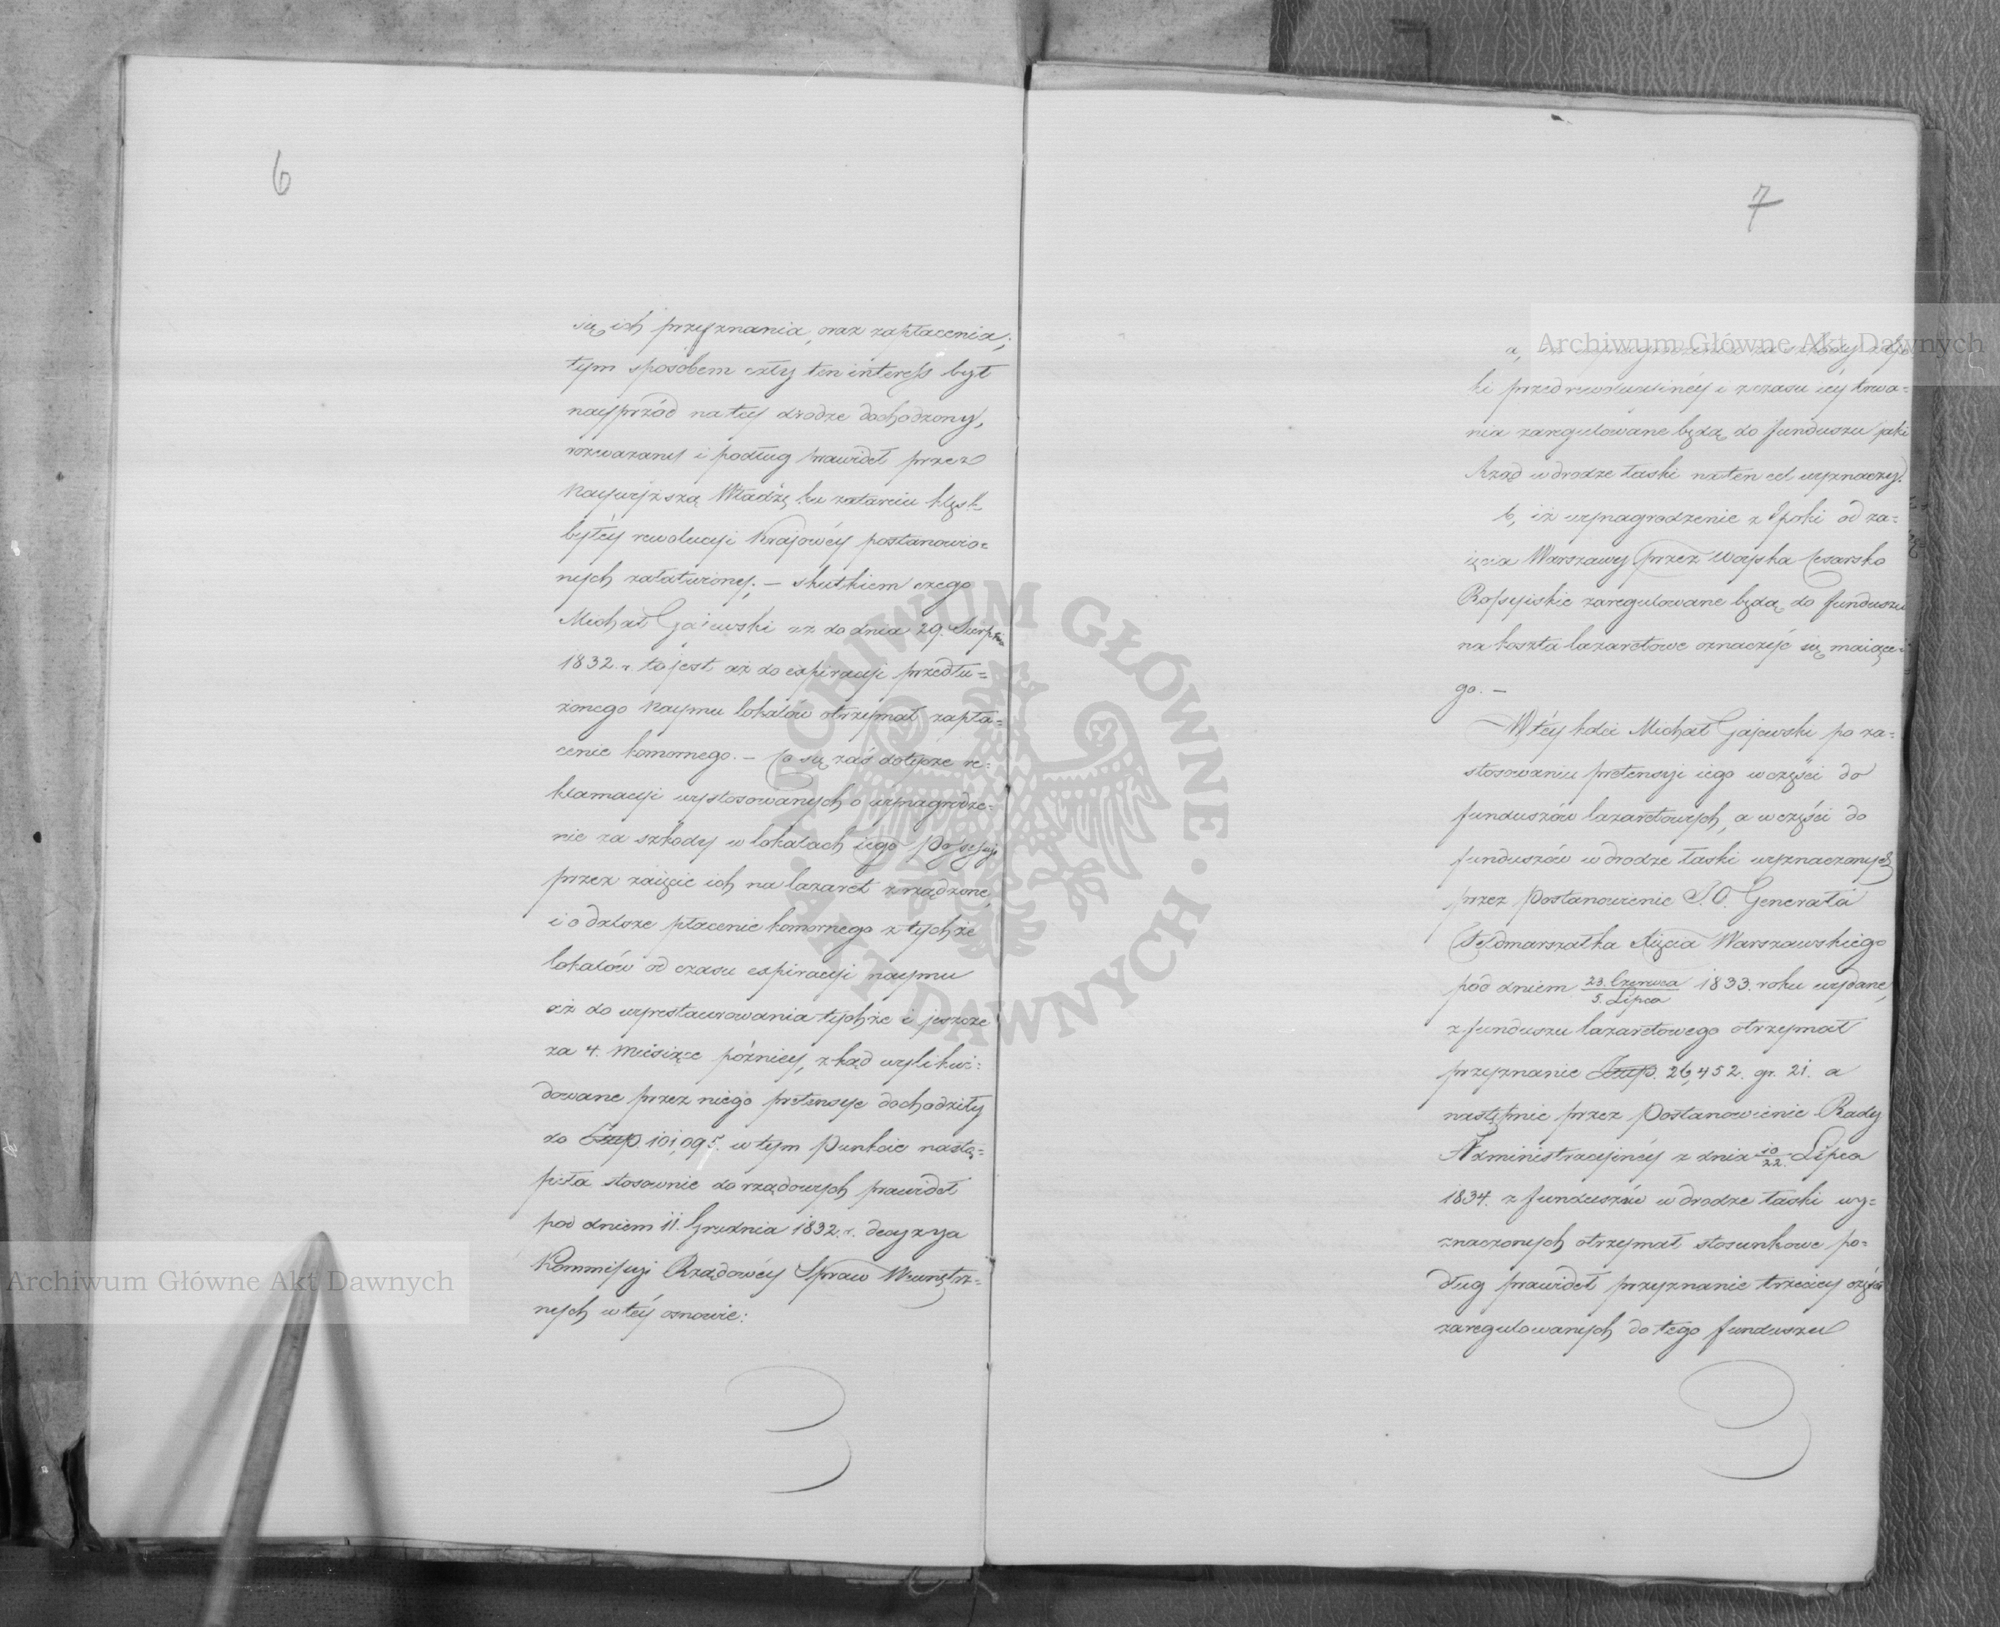 6
się ich przyznania, oraz zapłacenia;
tym sposobem cały ten interess był
nayprzód na tey drodze dochodzony,
rozważany i podług prawideł przez
Naywyższą Władzę ku zatarciu klęsk
byłéy rewolucyi Krajowéy postanowio=
nych załatwiony; — skutkiem czego
Michał Gajewski aż do dnia 29. Sierpnia
1832. r. to jest aż do expiracyi przedłu=
żonego Naymu lokalów otrzymał zapła=
cenie komornego. — Co się zaś dotycze re=
klamacyi wystosowanych o wynagrodze=
nie za szkody w lokalach iego Possessyi
przez zaięcie ich na lazaret zrządzone
i o dalsze płacenie komornego z tychże
lokalów od czasu expiracyi naymu
aż do wyrestaurowania tychże i jeszcze
za 4. Miesiące późniey, zkąd wylikwi=
dowane przez niego pretensye dochodziły
do Złtp. 101,095. w tym Punkcie nastą=
piła stosownie do rządowych prawideł
pod dniem 11. Grudnia 1832. r. decyzya
Kommissyi Rządowéy Spraw Wewnętrz=
nych w téy osnowie:
7
a, iż wynagrodzenie za szkody z Epo
ki przedrewolucyinéy i z czasu iéy trwa=
nia zaregulowane będą do funduszu jaki
Rząd w drodze łaski na ten cel wyznaczy.
b, iż wynagrodzenie z Epoki od za=
ięcia Warszawy przez Woyska Cesarsko
Rossyiskie zaregulowane będą do funduszu
na koszta lazaretowe oznaczyć się maiące=
go. —
W téy kolei Michał Gajewski po za=
stosowaniu pretensyi iego w części do
funduszów lazaretowych, a w części do
funduszów w drodze łaski wyznaczonych
przez Postanowienie J.O. Generała
Feldmarszałka Xięcia Warszawskiego
pod dniem 23. Czerwca / 5. Lipca 1833. roku wydane,
z funduszu lazaretowego otrzymał
przyznanie Złtp. 26,452. gr. 21. a
następnie przez Postanowienie Rady
Administracyinéy z dnia 10/22. Lipca
1834. z funduszów w drodze łaski wy=
znaczonych otrzymał stosunkowe po=
dług prawideł przyznanie trzeciey części
zaregulowanych do tego funduszu
Archiwum Główne Akt Dawnych
Archiwum Główne Akt Dawnych
ARCHIWUM GŁÓWNE · AKT DAWNYCH ·